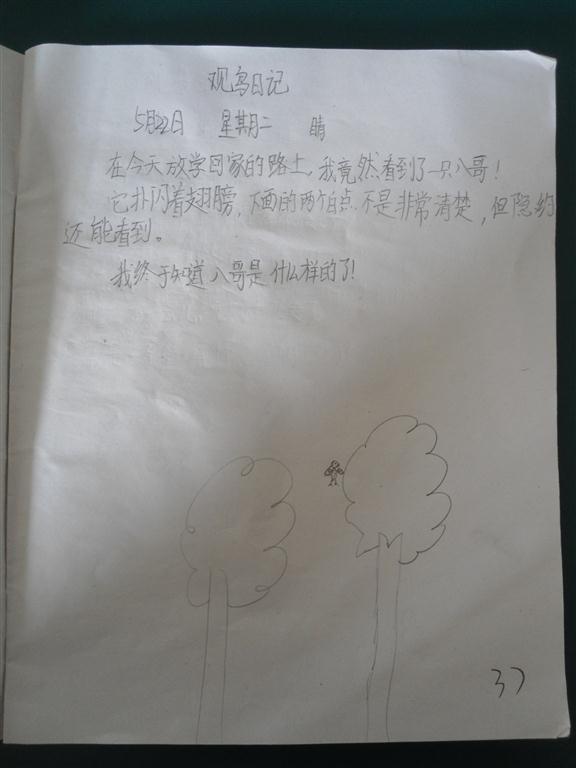 观鸟日记
5月22日 星期二 晴
在今天放学回家的路上,我竟然看到了一只八哥!
它扑闪着翅膀,下面的两个白点不是非常清楚,但隐约
还能看到。
我终于知道八哥是什么样的了!
37